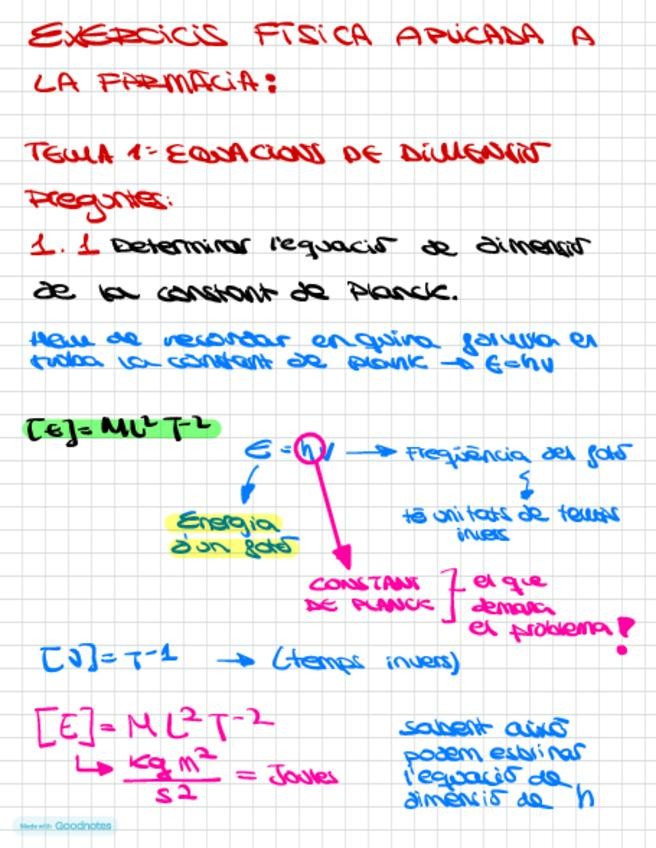 EXERCICIS FÍSICA APLICADA A
LA FARMÀCIA:
TEMA 1: EQUACIONS DE DIMENSIÓ
Preguntes:
1.1 Determinar l'equació de dimensió
de la constant de Planck.
Hem de recordar en quina formula es
troba la constant de plank → E=hν
[E]= ML² T-2
E = hν → Freqüència del fotó
Energia
d'un fotó
té unitats de temps
invers
CONSTANT
DE PLANCK
el que
demana
el problema!
[ν]= T-1 → (temps invers)
[E]= M L² T-2
kg m²
s2
= Joules
sabent això
podem esbrinar
l'equació de
dimensió de h
Made with Goodnotes